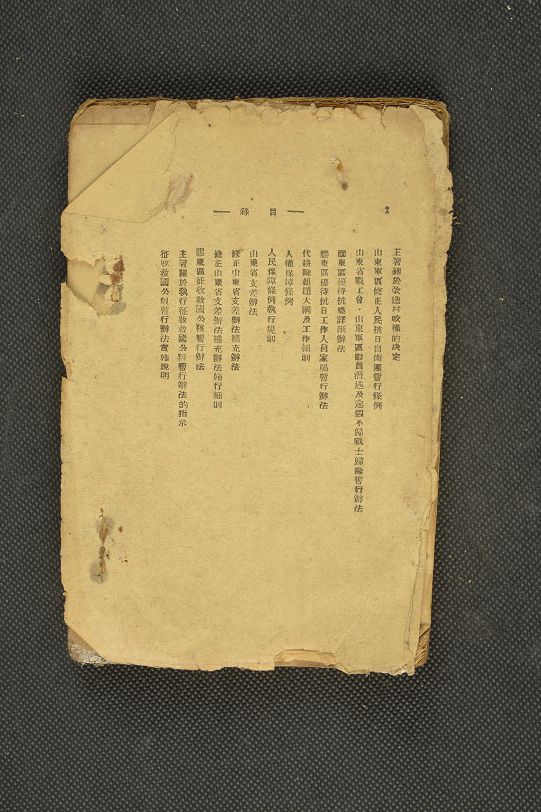 目錄
主署關於改造村政權的決定
山東軍區修正人民抗日自衛團暫行條例
山東省戰工會·山東軍區動員潛逃及逾假不歸戰士歸隊暫行辦法
膠東區優待抗屬詳細辦法
膠東區優待抗日工作人員家屬暫行辦法
代耕隊組織大綱及工作細則
人權保障條例
人民保障條例執行規則
山東省支差辦法
修正山東省支差辦法補充辦法
修正山東省支差辦法補充辦法施行細則
膠東區征收救國公糧暫行辦法
主署關於執行征收救國公糧暫行辦法的指示
征收救國公糧暫行辦法實施說明